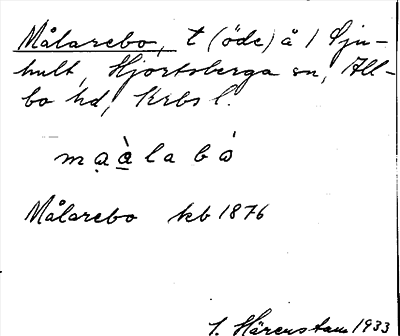 Målarebo, t (öde) å 1 Sju-
hult, Hjortsberga sn, All-
bo hd, Krbs l.
mạạ̀labò
Målarebo kb 1876
S. Härenstam 1933